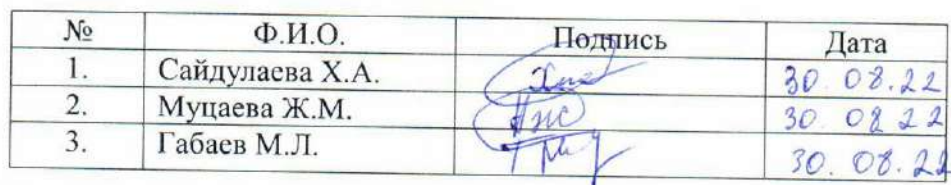 № Ф.И.О. Подпись Дата
1. Сайдулаева Х.А. 30.08.22
2. Муцаева Ж.М. 30 08 22
3. Габаев М.Л. 30. 08. 22